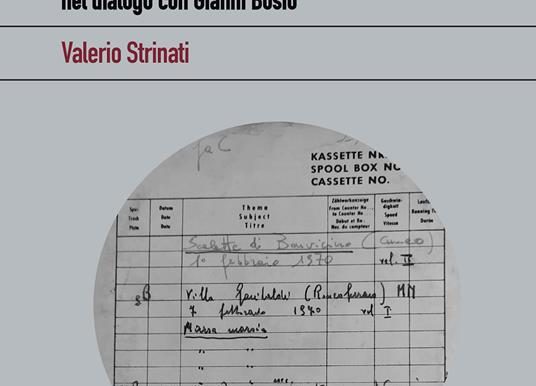 nel dialogo con Gianni Bosio
Valerio Strinati
KASSETTE NR.
SPOOL BOX NO
CASSETTE NO.
Spur Track Piste
Datum Date Date
Thema Subject Titre
Zählwerkanzeige From Counter No... to Counter No... Début et fin Nos. du compteur
Geschwindigkeit Speed Vitesse
Running
Scalette di Bonvicino (Cuneo)
1° febbraio 1970 vel. II
Villa Garibaldi (Roncoferraro) MN
7 febbraio 1970 vel I
Massa marcia
" "
" "